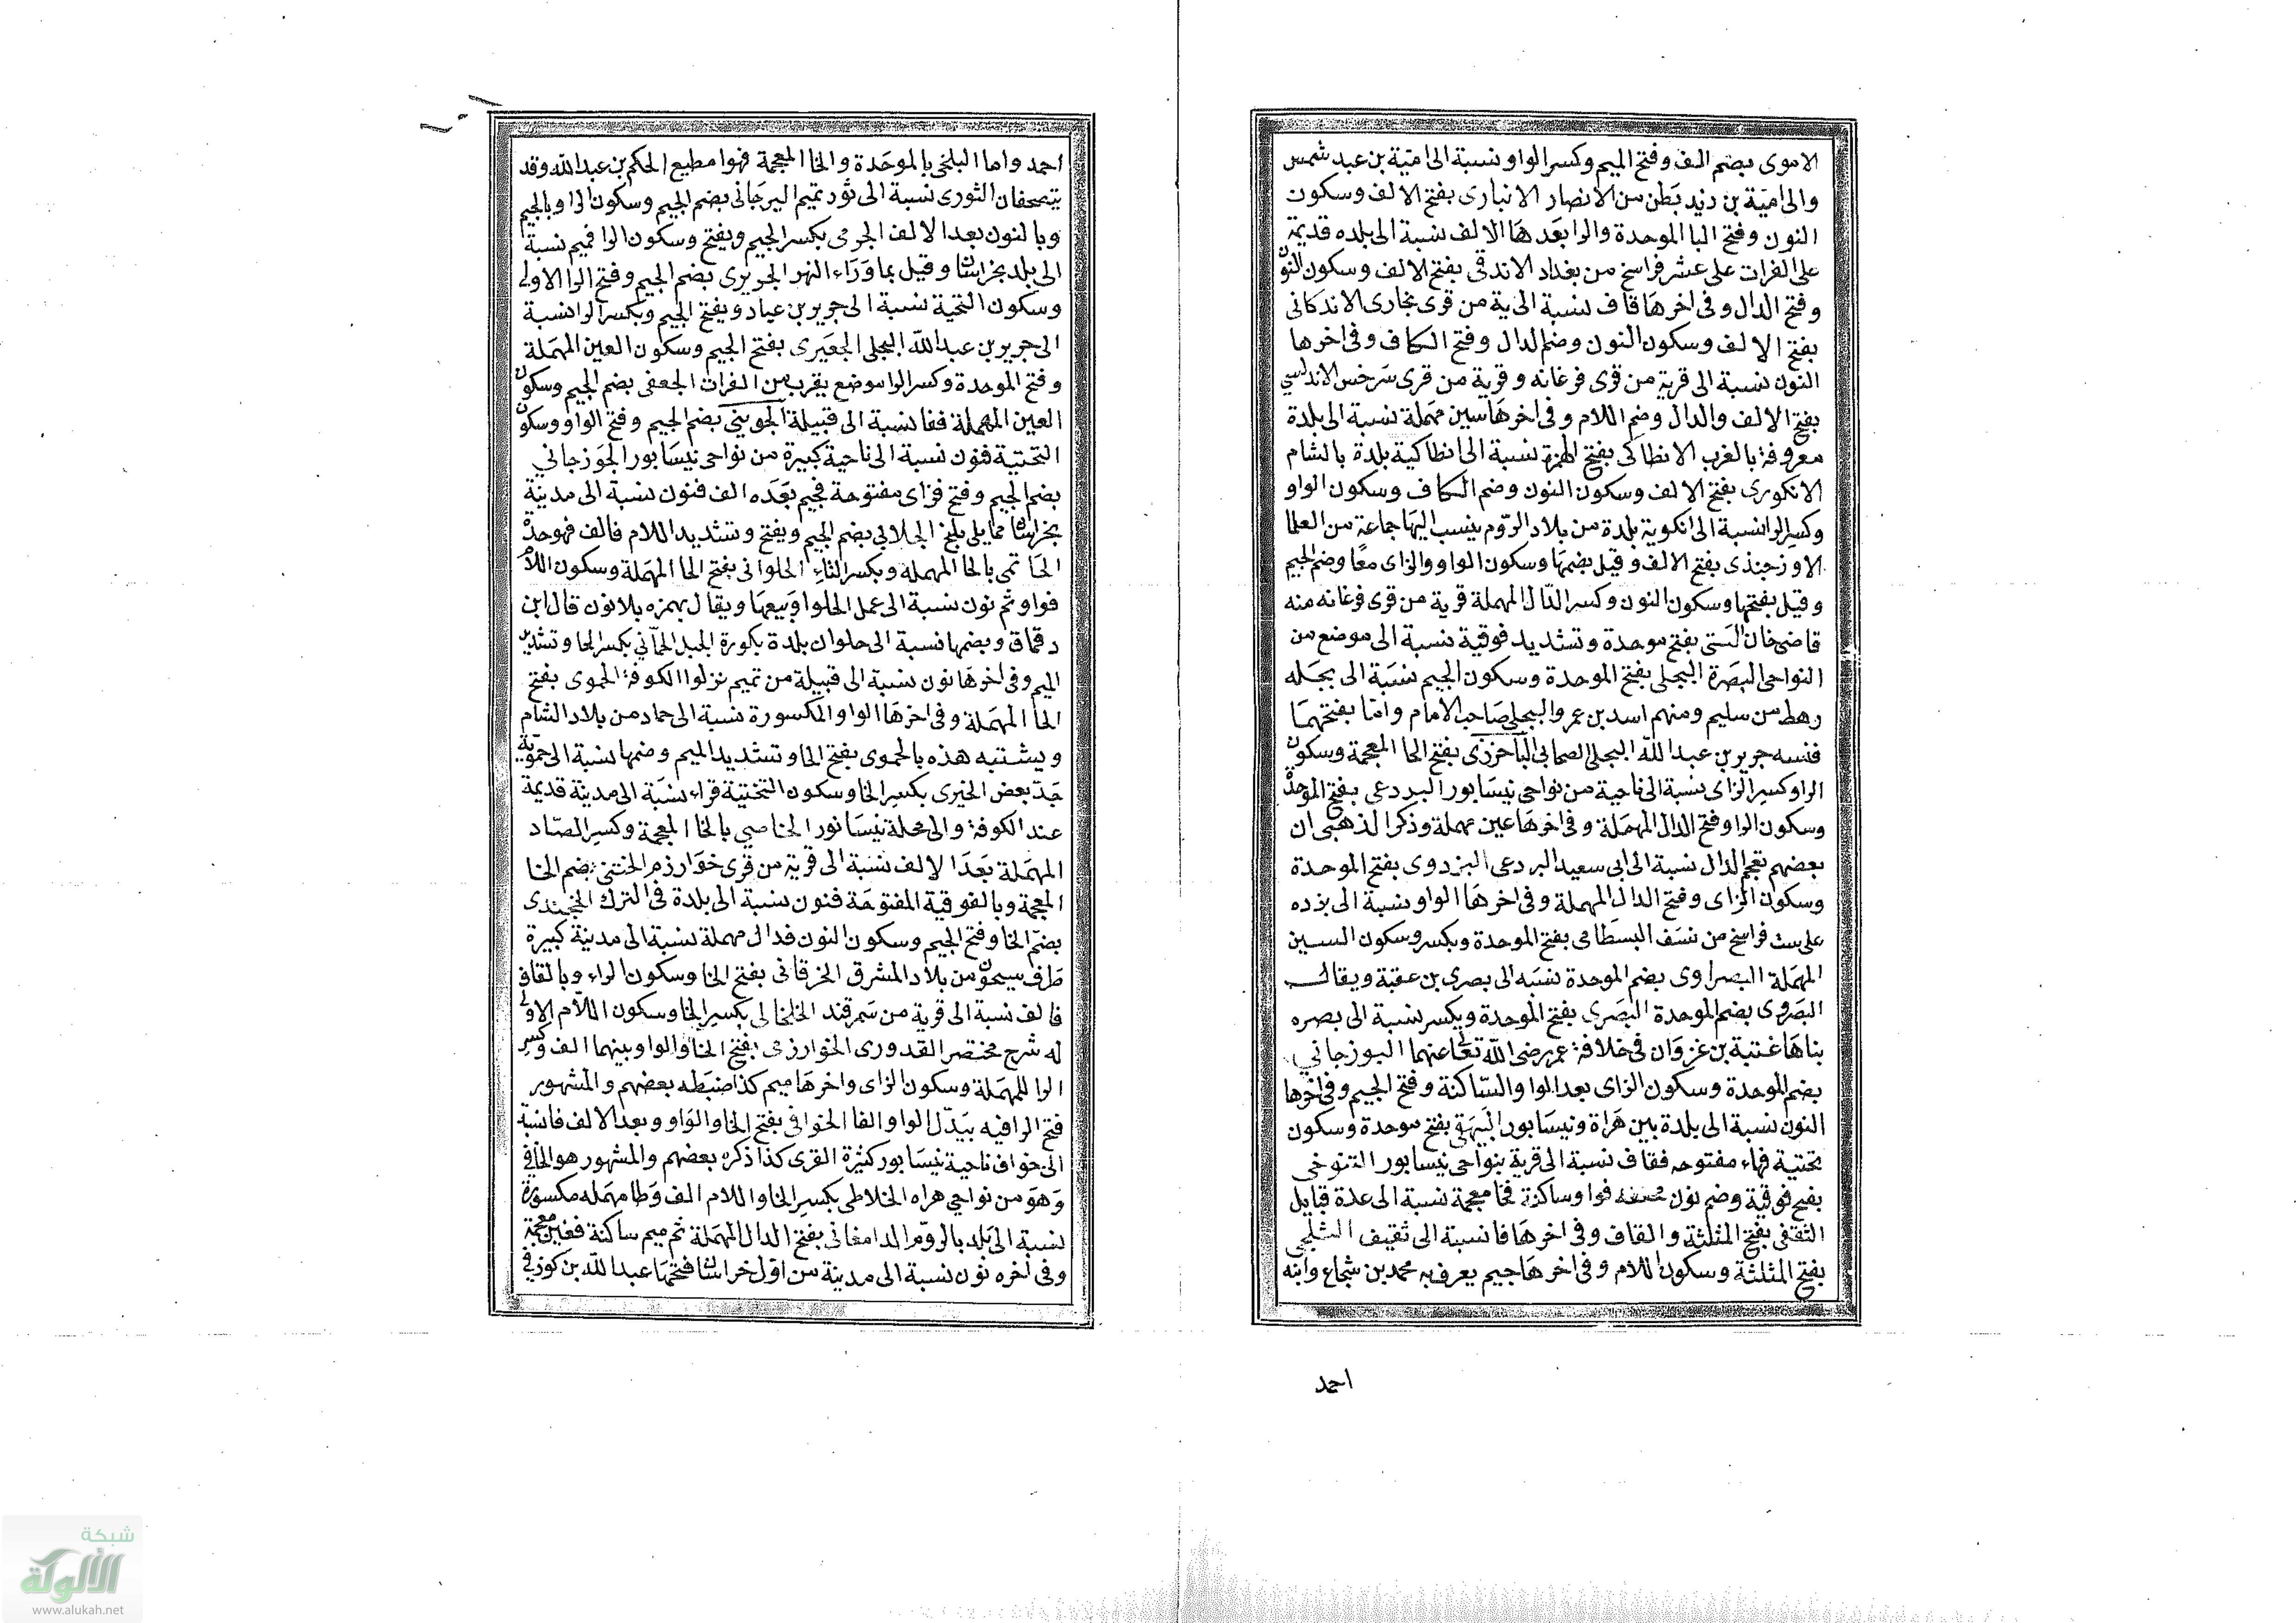 الاموى بضم الالف وفتح الميم وكسر الواو نسبة الى امية بن عبد شمس
والى امية بن زيد بطن من الانصار الانبارى بفتح الالف وسكون
النون وفتح البا الموحدة والرا بعدها الالف نسبة الى بلده قديمة
على الفرات على عشر فراسخ من بغداد الاندقى بفتح الالف وسكون النون
وفتح الدال وفى اخرها قاف نسبة الى ية من قرى بخارى الاندكانى
بفتح الالف وسكون النون وضم الدال وفتح الكاف وفى اخرها
النون نسبة الى قرية من قرى فرغانه وقرية من قرى سرخس الاندلسي
بفتح الالف والدال وضم اللام وفى اخرها سين مهملة نسبة الى بلدة
معروفة بالغرب الانطاكى بفتح الهمزة نسبة الى انطاكية بلدة بالشام
الانكورى بفتح الالف وسكون النون وضم الكاف وسكون الواو
وكسر الرا نسبة الى انكورية بلدة من بلاد الروم ينسب اليها جماعة من العلما
الاوزجندى بفتح الالف وقيل بضمها وسكون الواو والزاى معا وضم الجيم
وقيل بفتحها وسكون النون وكسر الدال المهملة قرية من قرى فرغانه منه
قاضى خان البستى بفتح موحدة وتشديد فوقية نسبة الى موضع من
النواحى البصرة البجلى بفتح الموحدة وسكون الجيم نسبة الى بجله
رهط من سليم ومنهم اسد بن عمرو البجلى صاحب الامام واما بفتحهما
فنسبه جرير بن عبد الله البجلى الصحابى الباخرزى بفتح الخا المعجمة وسكون
الرا وكسر الزاى نسبة الى ناحية من نواحى نيسابور البردعى بفتح الموحدة
وسكون الرا وفتح الدال المهملة وفى اخرها عين مهملة وذكر الذهبى ان
بعضهم تعجم الدال نسبة الى ابى سعيد البردعى البزدوى بفتح الموحدة
وسكون الزاى وفتح الدال المهملة وفى اخرها الواو نسبة الى بزده
على ست فراسخ من نسف البسطامى بفتح الموحدة وبكسر وسكون السين
المهملة البصراوى بضم الموحدة نسبه الى بصرى بن عقبة ويقال
البصروى بضم الموحدة البصرى بفتح الموحدة ويكسر نسبة الى بصره
بناها عتبة بن غزوان فى خلافة عمر رضى الله تعالى عنهما البوزجاني
بضم الموحدة وسكون الزاى بعد الواو الساكنة وفتح الجيم وفى اخرها
النون نسبة الى بلدة بين هراة ونيسابور البيهقى بفتح موحدة وسكون
تحتية فهاء مفتوحه فقاف نسبة الى قرية بنواحى نيسابور التنوخى
بفتح فوقية وضم نون فواو ساكنة فخا معجمة نسبة الى عدة قبايل
الثقفى بفتح المثلثة والقاف وفى اخرها فا نسبة الى ثقيف الثلجى
بفتح المثلثة وسكون اللام وفى اخرها جيم يعرف به محمد بن شجاع وابنه
احمد
احمد واما البلخى بالموحدة والخا المعجمة فهوا مطيع الحكم بن عبد الله وقد
يتصحفان الثورى نسبة الى ثور تميم البرجانى بضم الجيم وسكون الرا وبالجيم
وبالنون بعد الالف الجرمى بكسر الجيم ويفتح وسكون الرا فميم نسبة
الى بلد بخراسان وقيل بما وراء النهر الجريرى بضم الجيم وفتح الرا الاولى
وسكون التحية نسبة الى جرير بن عباد ويفتح الجيم وبكسر الرا نسبة
الى جرير بن عبد الله البجلى الجعبرى بفتح الجيم وسكون العين المهملة
وفتح الموحدة وكسر الرا موضع بقرب من الفرات الجعفى بضم الجيم وسكون
العين المهملة ففا نسبة الى قبيلة الجوينى بضم الجيم وفتح الواو وسكون
التحتية فنون نسبة الى ناحية كبيرة من نواحى نيسابور الجوزجاني
بضم الجيم وفتح فزاى مفتوحة فجيم بعده الف فنون نسبة الى مدينة
بخراسان مما يلى بلخ الجلابى بضم الجيم ويفتح وتشديد اللام فالف فموحدة
الحاتمى بالحا المهمله وبكسر التاء الحلوانى بفتح الحا المهملة وسكون اللام
فواو ثم نون نسبة الى عمل الحلوا وبيعها ويقال بهمزه بلا نون قال ابن
دقماق وبضمها نسبة الى حلوان بلدة بكورة الجبل الحمانى بكسر الحا وتشديد
الميم وفى اخرها نون نسبة الى قبيلة من تميم نزلوا الكوفة الحموى بفتح
الحا المهملة وفى اخرها الواو المكسورة نسبة الى حماد من بلاد الشام
ويشتبه هذه بالحموى بفتح الحا وتشديد الميم وضمها نسبة الى حموية
جد بعض الخيرى بكسر الخا وسكون التحتية فراء نسبة الى مدينة قديمة
عند الكوفة والى محلة بنيسانور الخاصى بالخا المعجمة وكسر الصاد
المهملة بعد الالف نسبة الى قرية من قرى خوارزم الختنى بضم الخا
المعجمة وبالفوقية المفتوحة فنون نسبة الى بلدة فى الترك الخجندى
بضم الخا وفتح الجيم وسكون النون فدال مهملة نسبة الى مدينة كبيرة
طرف سيحون من بلاد المشرق الخرقانى بفتح الخا وسكون الراء وبالقاف
فالف نسبة الى قرية من سمرقند الخلخالى بكسر الخا وسكون اللام الاولى
له شرح مختصر القدورى الخوارزمى بفتح الخا والواو بينهما الف وكسر
الرا المهملة وسكون الزاى واخرها ميم كذا ضبطه بعضهم والمشهور
فتح الرا فيه بيدل الواو الفا الخوافى بفتح الخا والواو وبعد الالف فا نسبة
الى خواف ناحية نيسابور كثيرة القرى كذا ذكره بعضهم والمشهور هو الخافى
وهو من نواحي هراه الخلاطى بكسر الخا واللام الف وطا مهمله مكسورة
نسبة الى بلد بالروم الدامغانى بفتح الدال المهملة ثم ميم ساكنة فغين معجمة
وفى اخره نون نسبة الى مدينة من اول خراسان فتحها عبد الله بن كوزفى
شبكة
الألوكة
www.alukah.net